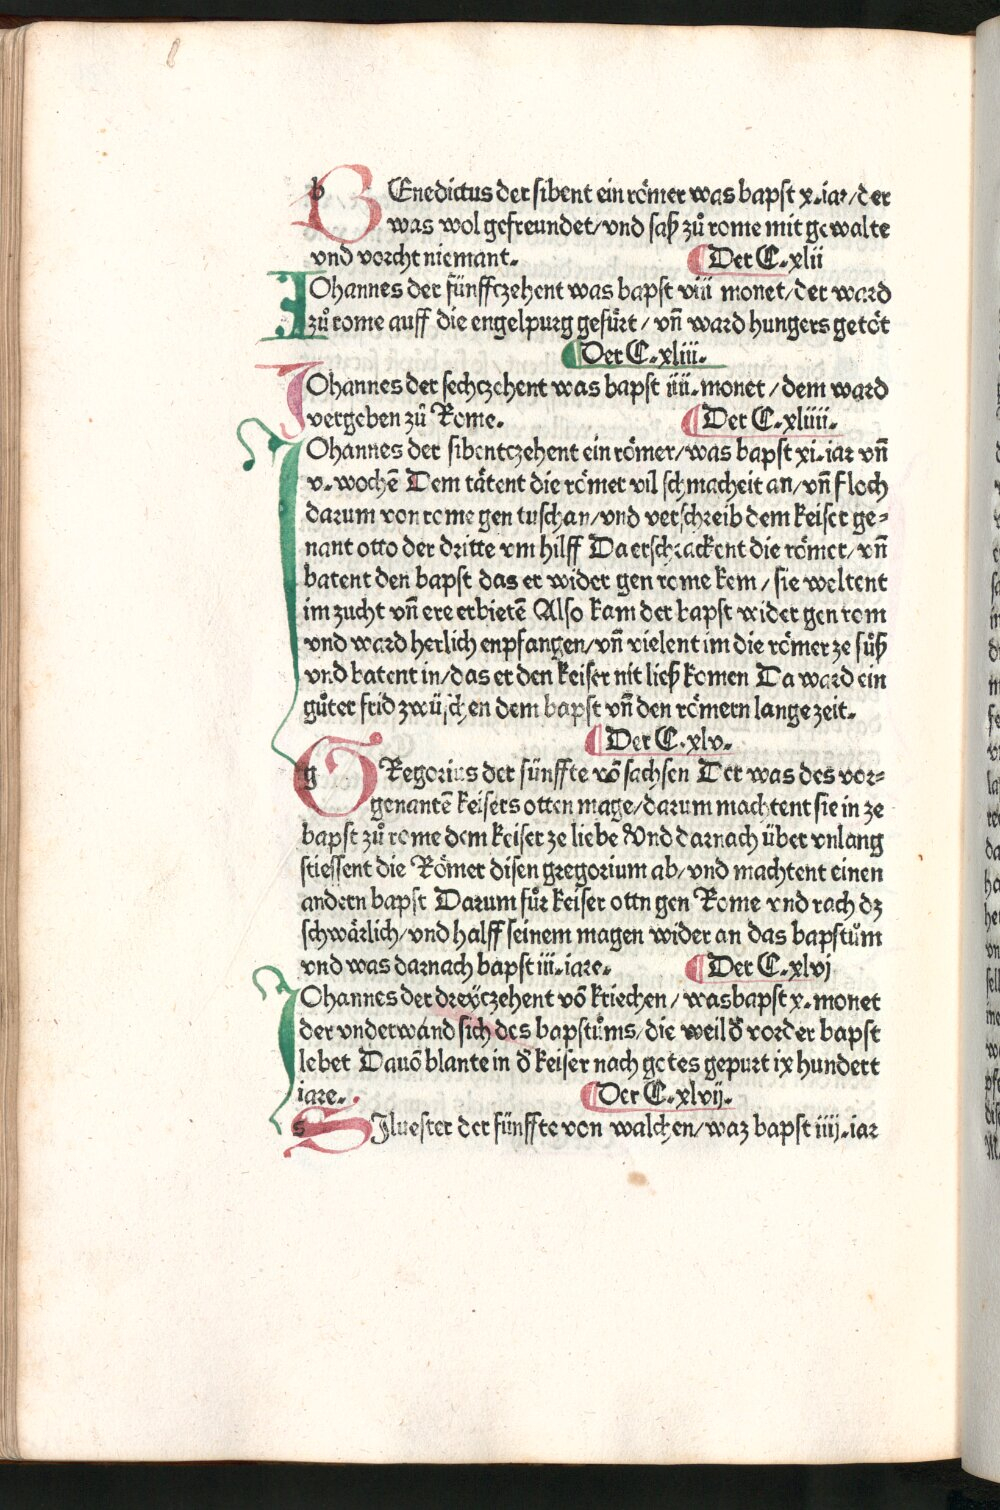 BEnedictus der sibent ein römer was bapst x·iar/der
was wol gefreundet/vnd saß zů rome mit gewalte
vnd vorcht niemant. Der C.xlii
IOhannes der fünffczehent was bapst viii monet/der ward
zů rome auff die engelpurg gefürt/ vñ ward hungers getöt
Der C.xliii.
IOhannes der sechczehent was bapst iiii.monet/dem ward
vergeben zů Rome. Der C.xliiii.
IOhannes der sibentczehent ein römer/was bapst xi.iar vñ
v.wochē Dem tätent die römer vil schmacheit an/vñ floch
darum von rome gen tuschan/vnd verschreib dem keiser ge⸗
nant otto der dritte vm hilff Da erschrackent die römer/vñ
batent den bapst das er wider gen rome kem/sie weltent
im zucht vñ ere erbietē Also kam der bapst wider gen rom
vnd ward herlich enpfangen/vñ vielent im die römer ze füß
vnd batent in/das er den keiser nit ließ komen Da ward ein
gůter frid zwüschen dem bapst vñ den römern lange zeit.
Der C.xlv.
GRegorius der fünffte vō sachsen Der was des vor⸗
genantē keisers otten mage/darum machtent sie in ze
bapst zů rome dem keiser ze liebe Vnd darnach über vnlang
stiessent die Römer disen gregorium ab/vnd machtent einen
andern bapst Darum fůr keiser ottn gen Rome vnd rach dz
schwärlich/vnd halff seinem magen wider an das bapstům
vnd was darnach bapst iii.iare. Der C.xlvi
IOhannes der dreÿczehent vō kriechen/ was bapst x.monet
der vnderwand sich des bapstůms/die weil d̄ vorder bapst
lebet Dauō blante in d̄ keiser nach gotes gepurt ix hundert
iare. Der C.xlvij.
SJluester der fünffte von walchen/waz bapst iiij.iar